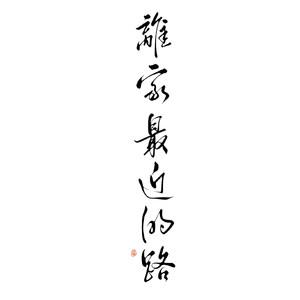 離家最近的路